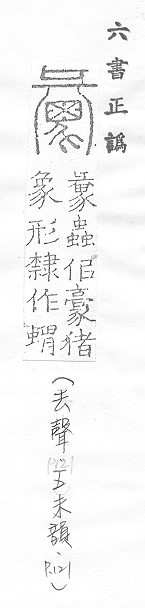 六書正譌
彙蟲佀豪猪
象形隸作蝟
(去聲．五未韻．P.12)